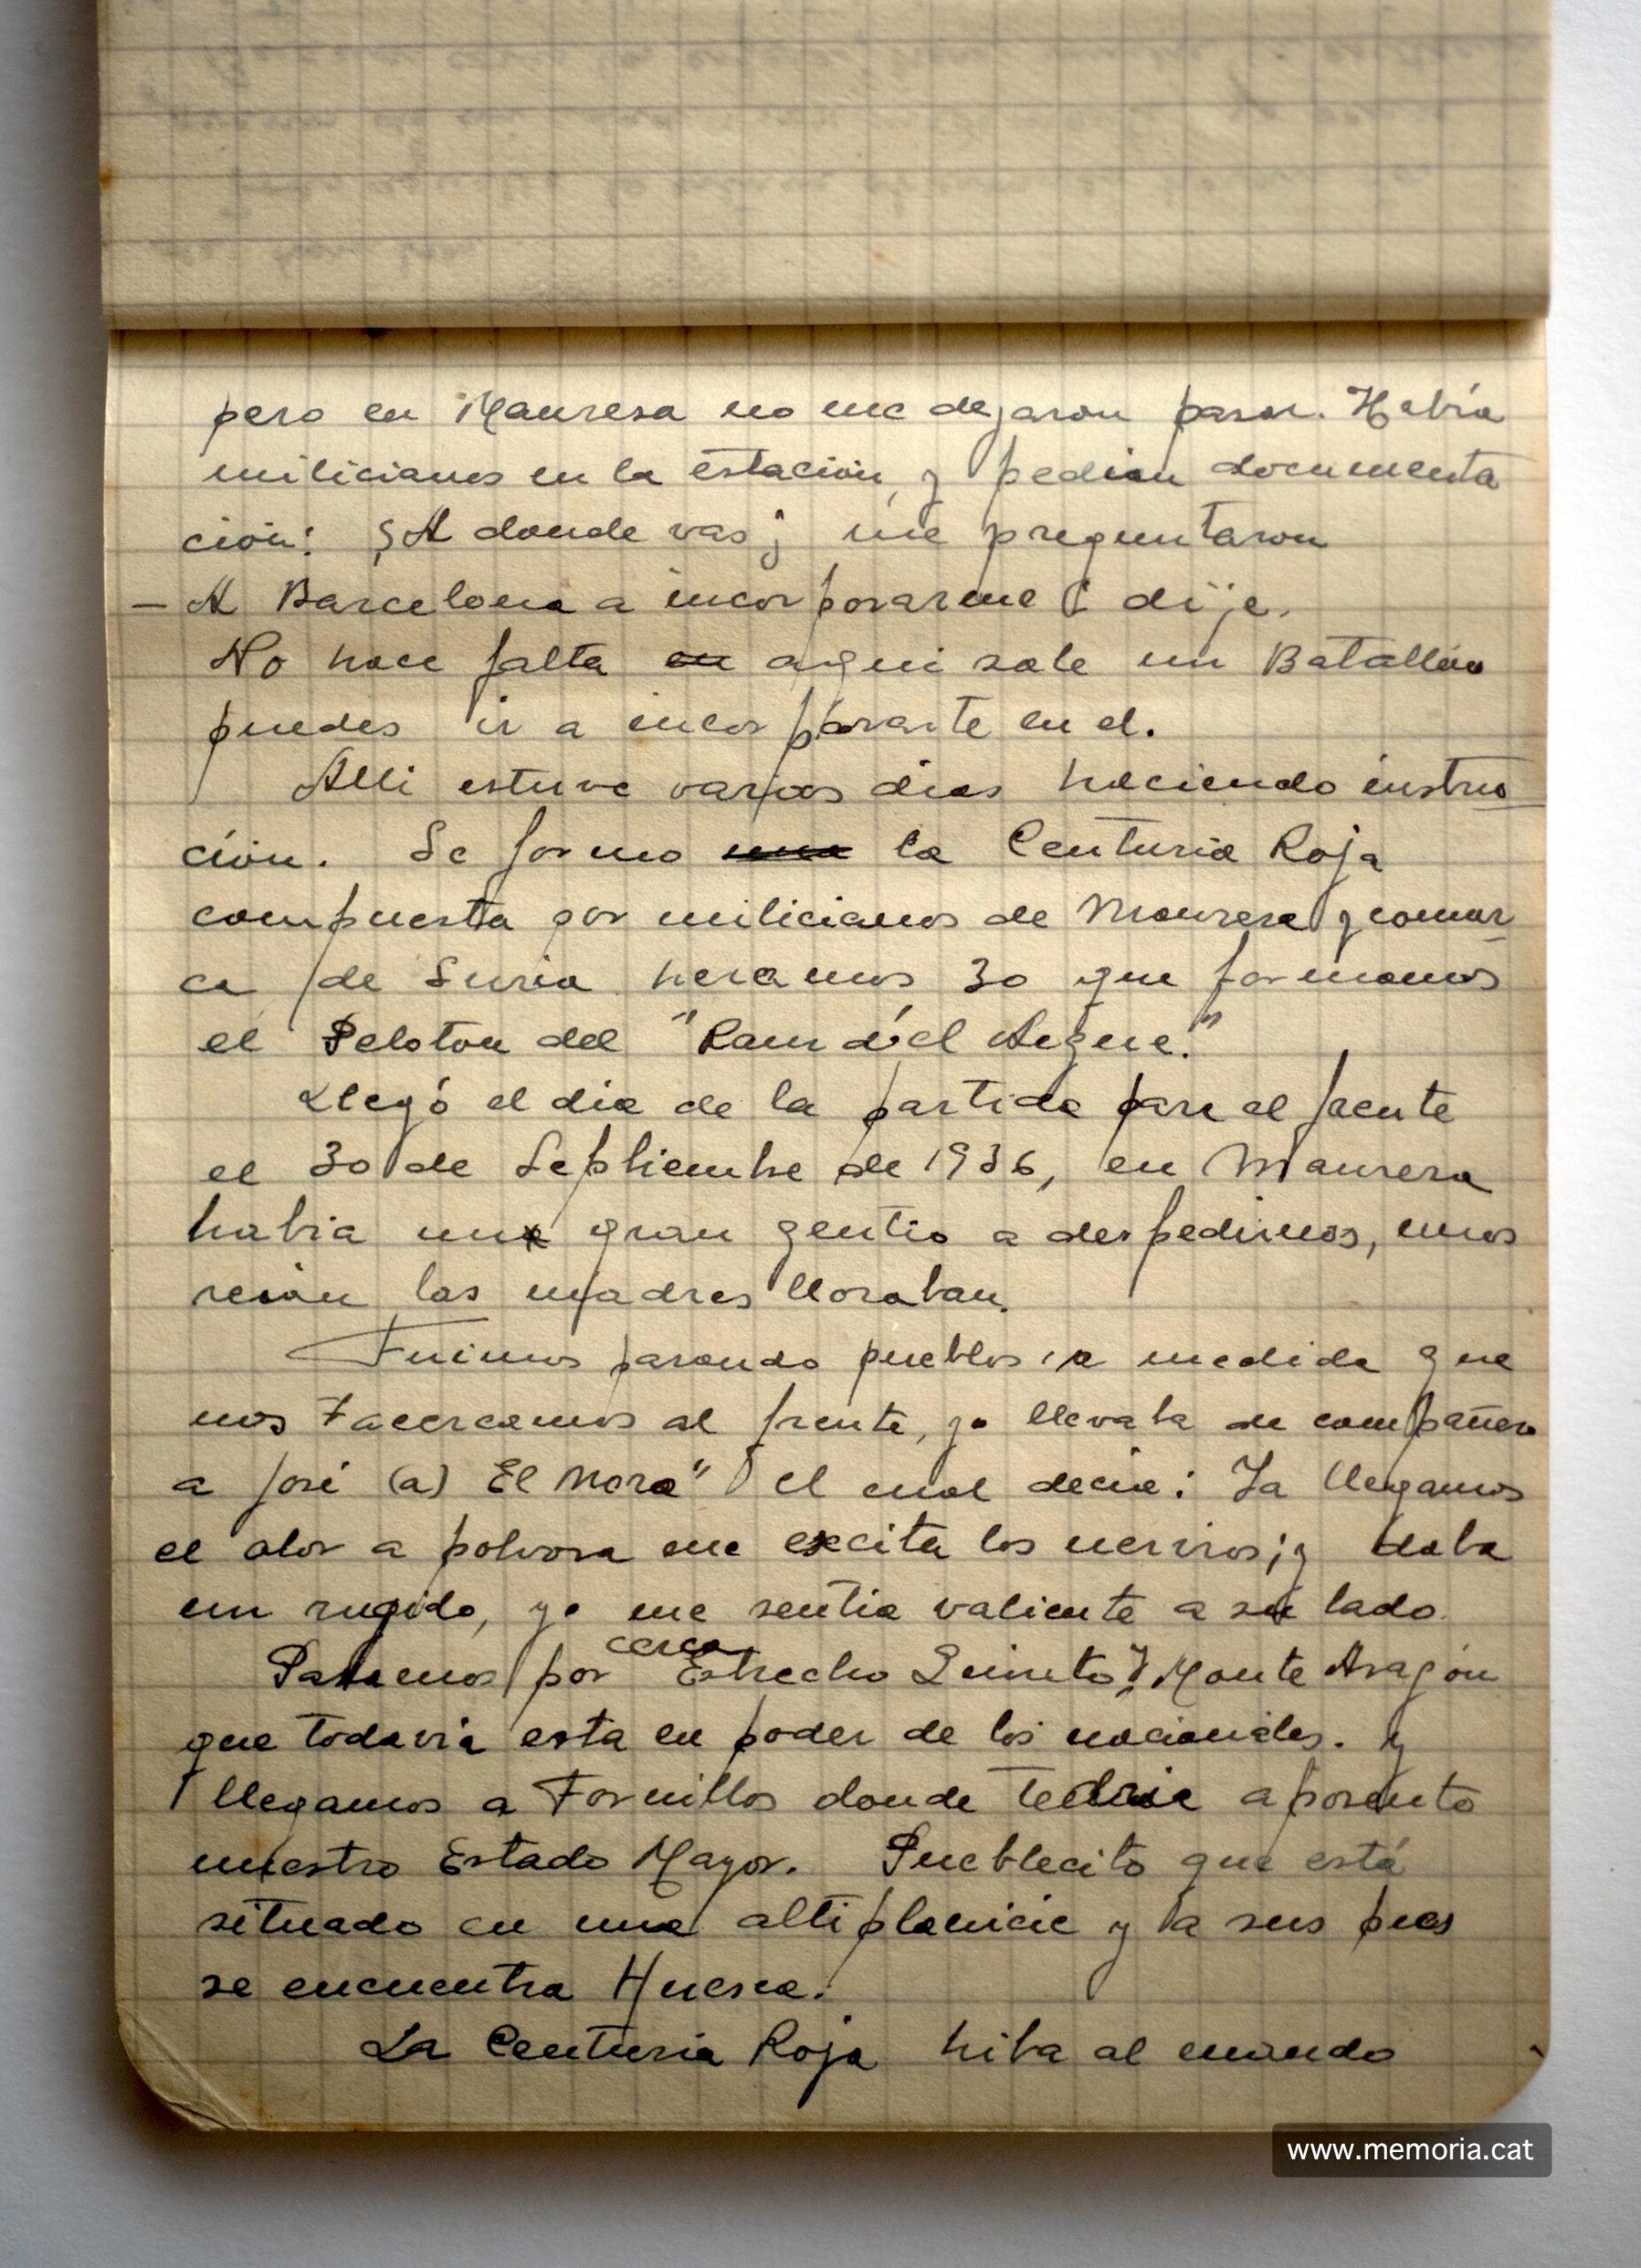 pero en Manresa no me dejaron pasar. Habia
milicianos en la estación, y pedian documenta
ción: ¿A donde vas; me preguntaron
— A Barcelona a incorporarme dije.
No hace falta en aqui sale un Batallón
puedes ir a incorporarte en el.
Alli estuve varios dias haciendo instru
ción. Se formo una la Centuria Roja
compuesta por milicianos de Manresa y comar
ca de Suria heramos 30 que formamos
el Peloton del "Ram d'el Aigue."
Llegó el dia de la partida para el frente
el 30 de Septiembre de 1936, en Manresa
habia un gran gentio a despedirnos, unos
reian las madres lloraban.
Fuimos pasando pueblos, a medida que
nos acercamos al frente, yo llevaba de compañero
a José (a) El Mora" el cual decia: Ya llegamos
el olor a polvora me excita los nervios; y daba
un rugido, yo me sentia valiente a su lado.
cerca
Pasamos por Estrecho Quinto y Monte Aragón
que todavia esta en poder de los nacionales. y
llegamos a Fornillos donde aposento
nuestro Estado Mayor. Pueblecito que está
situado en una altiplanicie y a sus pies
se encuentra Huesca.
La Centuria Roja hiba al mando
www.memoria.cat